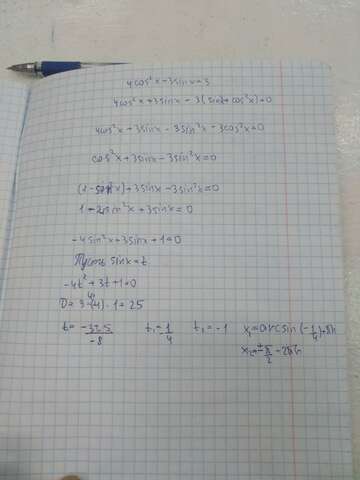 4cos²x+3sinx=3
4cos²x+3sinx-3(sin²x+cos²x)=0
4cos²x+3sinx-3sin²x-3cos²x=0
cos²x+3sinx-3sin²x=0
(1-sin²x)+3sinx-3sin²x=0
1-2sin²x+3sinx=0
-4sin²x+3sinx+1=0
Пусть sinx=t
-4t²+3t+1=0
t= -3±5/-8 t₁=-1/4 t₁=-1 x₁=arcsin(-1/4)